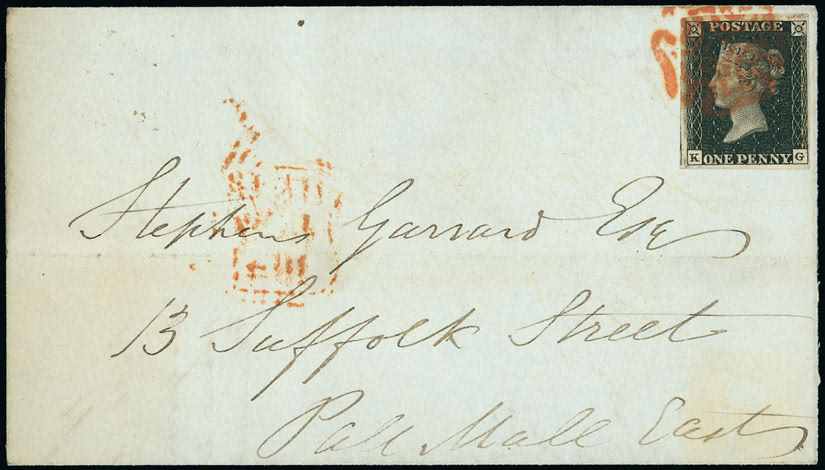 POSTAGE
K ONE PENNY G
Stephens Garrard Esq
13 Suffolk Street
Pall Mall East